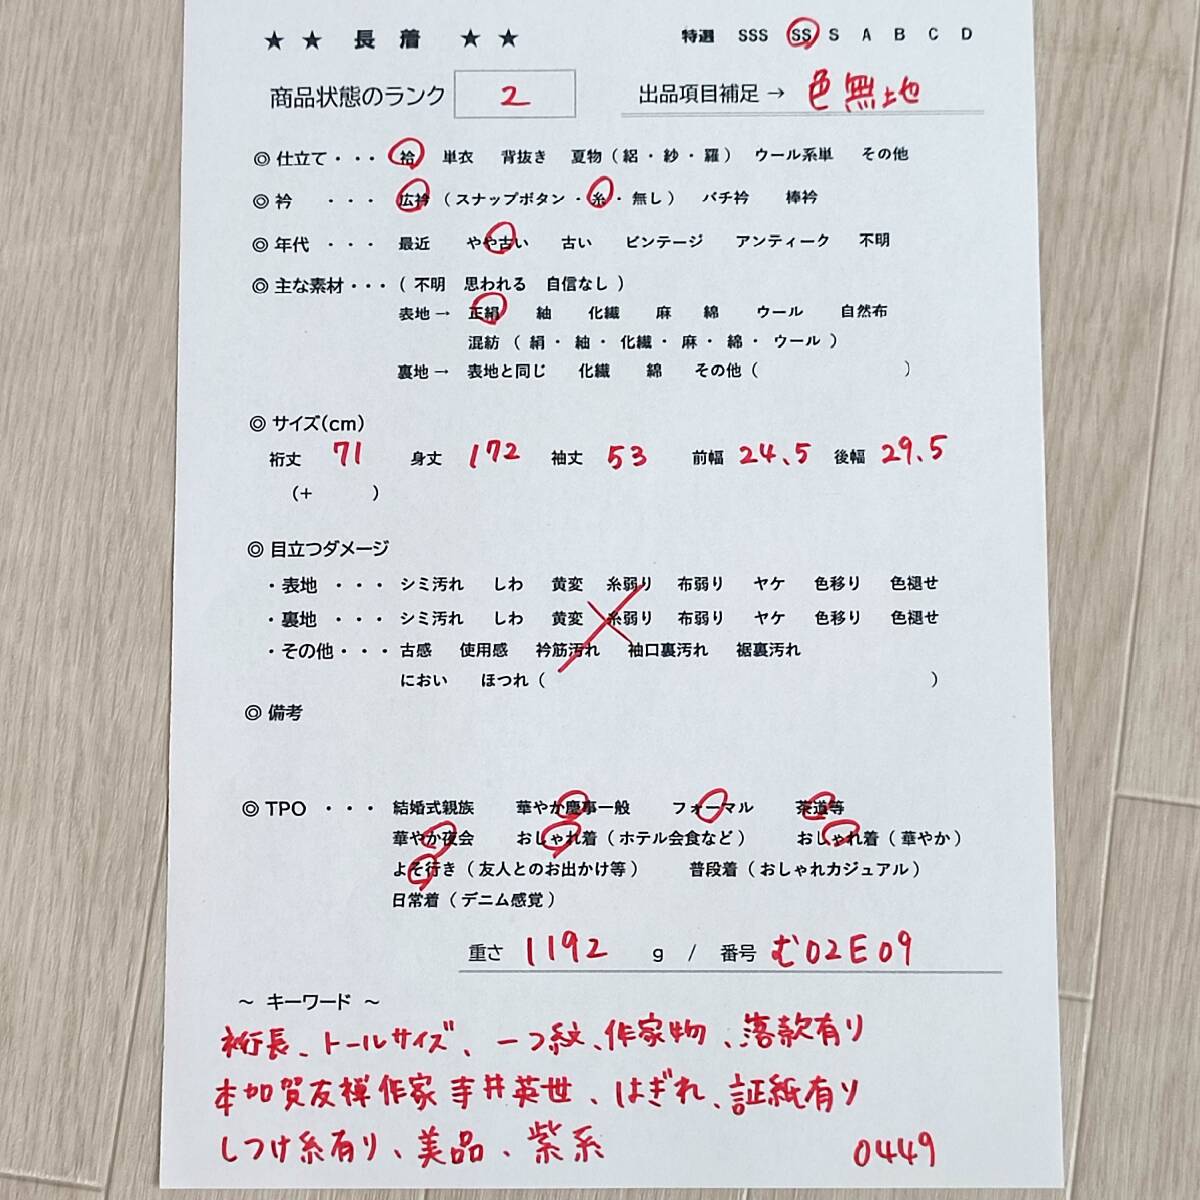 ★ ★ 長 着 ★ ★ 特選 SSS SS S A B C D
商品状態のランク 2 出品項目補足 → 色無地
◎ 仕立て・・・ 袷 単衣 背抜き 夏物（絽・紗・羅） ウール系単 その他
◎ 衿 ・・・ 広衿（スナップボタン・糸・無し） バチ衿 棒衿
◎ 年代 ・・・ 最近 やや古い 古い ビンテージ アンティーク 不明
◎ 主な素材・・・（ 不明 思われる 自信なし ）
表地→ 正絹 紬 化繊 麻 綿 ウール 自然布
混紡（ 絹・紬・化繊・麻・綿・ウール ）
裏地→ 表地と同じ 化繊 綿 その他（ ）
◎ サイズ(cm)
裄丈 71 身丈 172 袖丈 53 前幅 24.5 後幅 29.5
（+ ）
◎ 目立つダメージ
・表地 ・・・ シミ汚れ しわ 黄変 糸弱り 布弱り ヤケ 色移り 色褪せ
・裏地 ・・・ シミ汚れ しわ 黄変 糸弱り 布弱り ヤケ 色移り 色褪せ
・その他・・・ 古感 使用感 衿筋汚れ 袖口裏汚れ 裾裏汚れ
におい ほつれ（ ）
◎ 備考
◎ TPO ・・・ 結婚式親族 華やか慶事一般 フォーマル 茶道等
華やか夜会 おしゃれ着（ホテル会食など） おしゃれ着（華やか）
よそ行き（友人とのお出かけ等） 普段着（おしゃれカジュアル）
日常着（デニム感覚）
重さ 1192 g / 番号 む02E09
～ キーワード ～
裄長、トールサイズ、一つ紋、作家物、落款有り
本加賀友禅作家寺井英世、はぎれ、証紙有り
しつけ糸有り、美品、紫系 0449